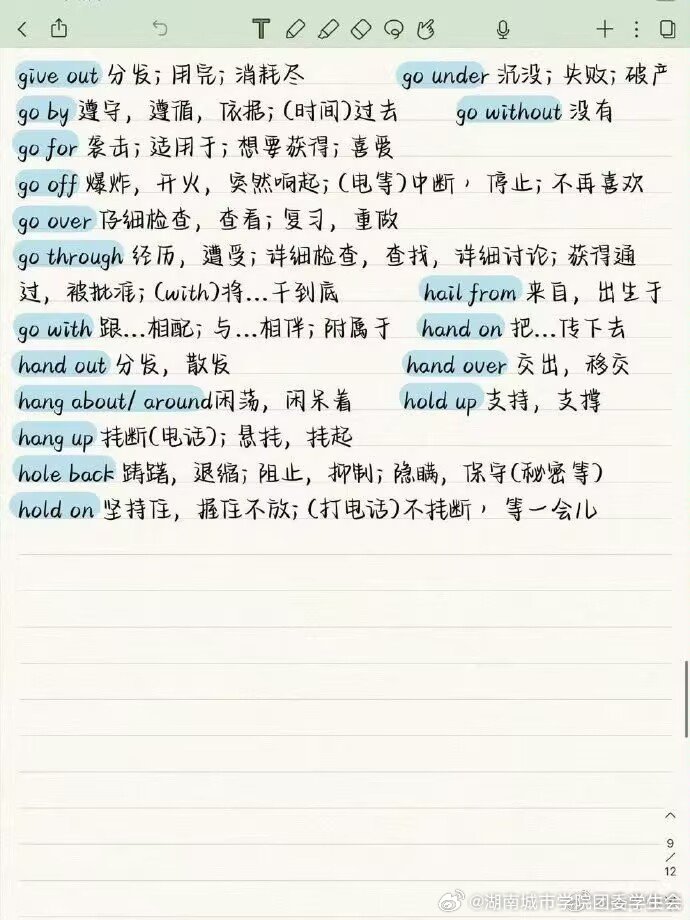 give out 分发；用完；消耗尽 go under 沉没；失败；破产
go by 遵守，遵循，依据；(时间)过去 go without 没有
go for 袭击；适用于；想要获得；喜爱
go off 爆炸，开火，突然响起；(电等)中断，停止；不再喜欢
go over 仔细检查，查看；复习，重做
go through 经历，遭受；详细检查，查找，详细讨论；获得通
过，被批准；(with)将…干到底 hail from 来自，出生于
go with 跟…相配；与…相伴；附属于 hand on 把…传下去
hand out 分发，散发 hand over 交出，移交
hang about/ around闲荡，闲呆着 hold up 支持，支撑
hang up 挂断(电话)；悬挂，挂起
hole back 踌躇，退缩；阻止，抑制；隐瞒，保守(秘密等)
hold on 坚持住，握住不放；(打电话)不挂断，等一会儿
9
/
12
@湖南城市学院团委学生会